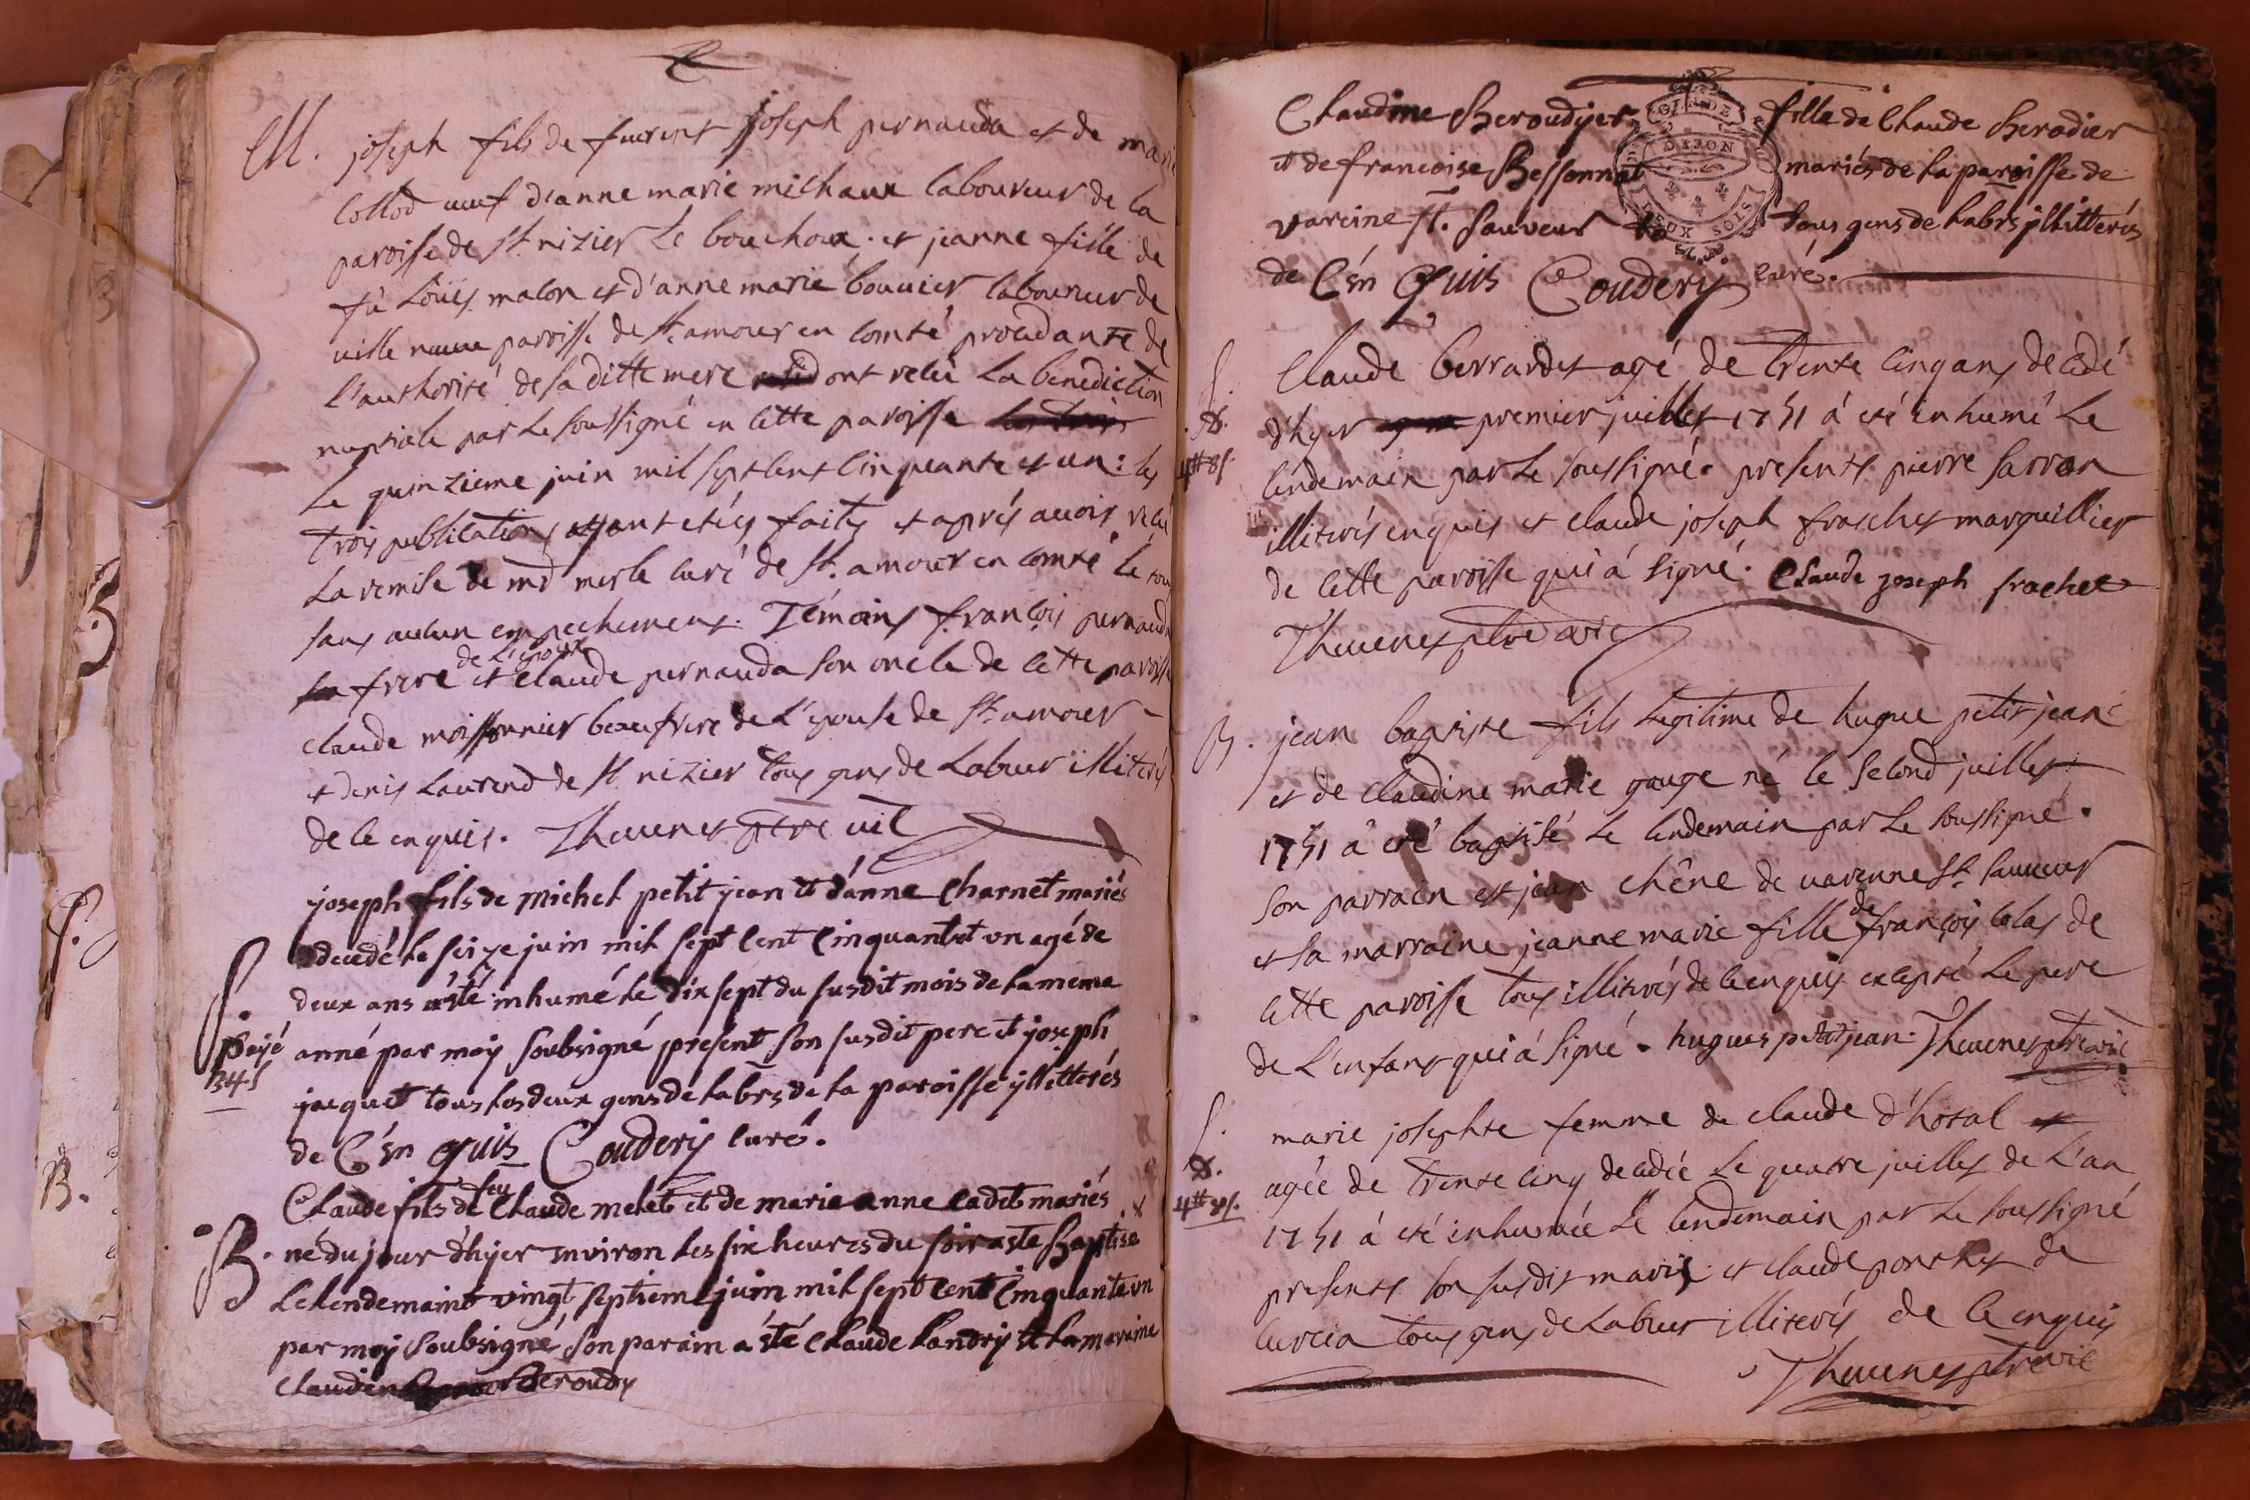 M. joseph fils de furent joseph pernauda et de marie
Collod veuf d'anne marie michaux laboureur de la
paroisse de st. nizier le bouchoux. et jeanne fille de
fû Louis malon et d'anne marie bouvier laboureur de
ville neuve paroisse de st. amour en comté procedante de
l'authorité de sa ditte mere ont recu la benediction
nuptiale par le soussigné en cette paroisse
le quinzieme juin mil sept cent cinquante et un: les
trois publications ayant etées faites et aprés avoir recu
la remise de mr. merle curé de st. amour en comté le tout
sans aucun empechement. Témoins françois pernauda
frere de l'epoux et claude pernauda son oncle de cette paroisse
claude moissonnier beaufrere de l'epouse de st. amour
et denis Laurend de st nizier tous gens de Labeur illiterés
de ce enquis. Thevenet ptre vic
joseph fils de michel petit jean et d'anne Charnet mariés
decedé le seize juin mil sept cent cinquante et un agé de
deux ans a êté inhumé le dix sept du susdit mois de la meme
S.
payé
34 s
anné par moy soubsigné présent son susdit pere et joseph
jacquet tous les deux gens de labrs de la paroisse yllitterés
de C'én quis Couderis curé.
Claude fils de feu Claude melet et de marie anne cadet mariés
B. né du jour d'hyer environ les six heures du soir a êté Baptisé
le lendemain vingt septieme juin mil sept cent cinquante vn
par moy soubsigné, son parain a êté Claude Landry et la maraine
Claudin Beroudy
Claudine Beroudyer fille de Claude Berodier
et de francoise Bessonnat mariés de la paroisse de
vareine st. Sauveur tous gens de labrs yllitterés
GI DE
DIJON
DEUX SOLS
de C'én quis Couderis curé.
S.
D.
4# 8s.
Claude berrardet agé de trente cinq ans decedé
d'hyer premier juillet 1751 á eté inhumé le
lendemain par le soussigné. presents pierre sarron
illiterés enquis et claude joseph fraschet marguillier
de cette paroisse qui á signé. Claude joseph frachet
Thevenet ptre vic
B. jean baptiste fils legitime de hugue petit jean
et de claudine marie gauge né le second juillet
1751 á eté baptisé le lendemain par le soussigné.
son parrain est jean chêne de varenne st. sauveur
et sa marraine jeanne marie fille de françois colas de
cette paroisse tous illiterés de ce enquis excepté le pere
de l'enfant qui á signé. hugues petit jean. Thevenet ptre vic
S.
D.
4# 8s.
marie josephte femme de claude d'hotal
agée de trente cinq decedée le quatre juillet de l'an
1751 á eté inhumée le lendemain par le soussigné
presents son susdit mari et claude ponthet de
curcia tous gens de labeur illiterés de ce enquis
Thevenet ptre vic